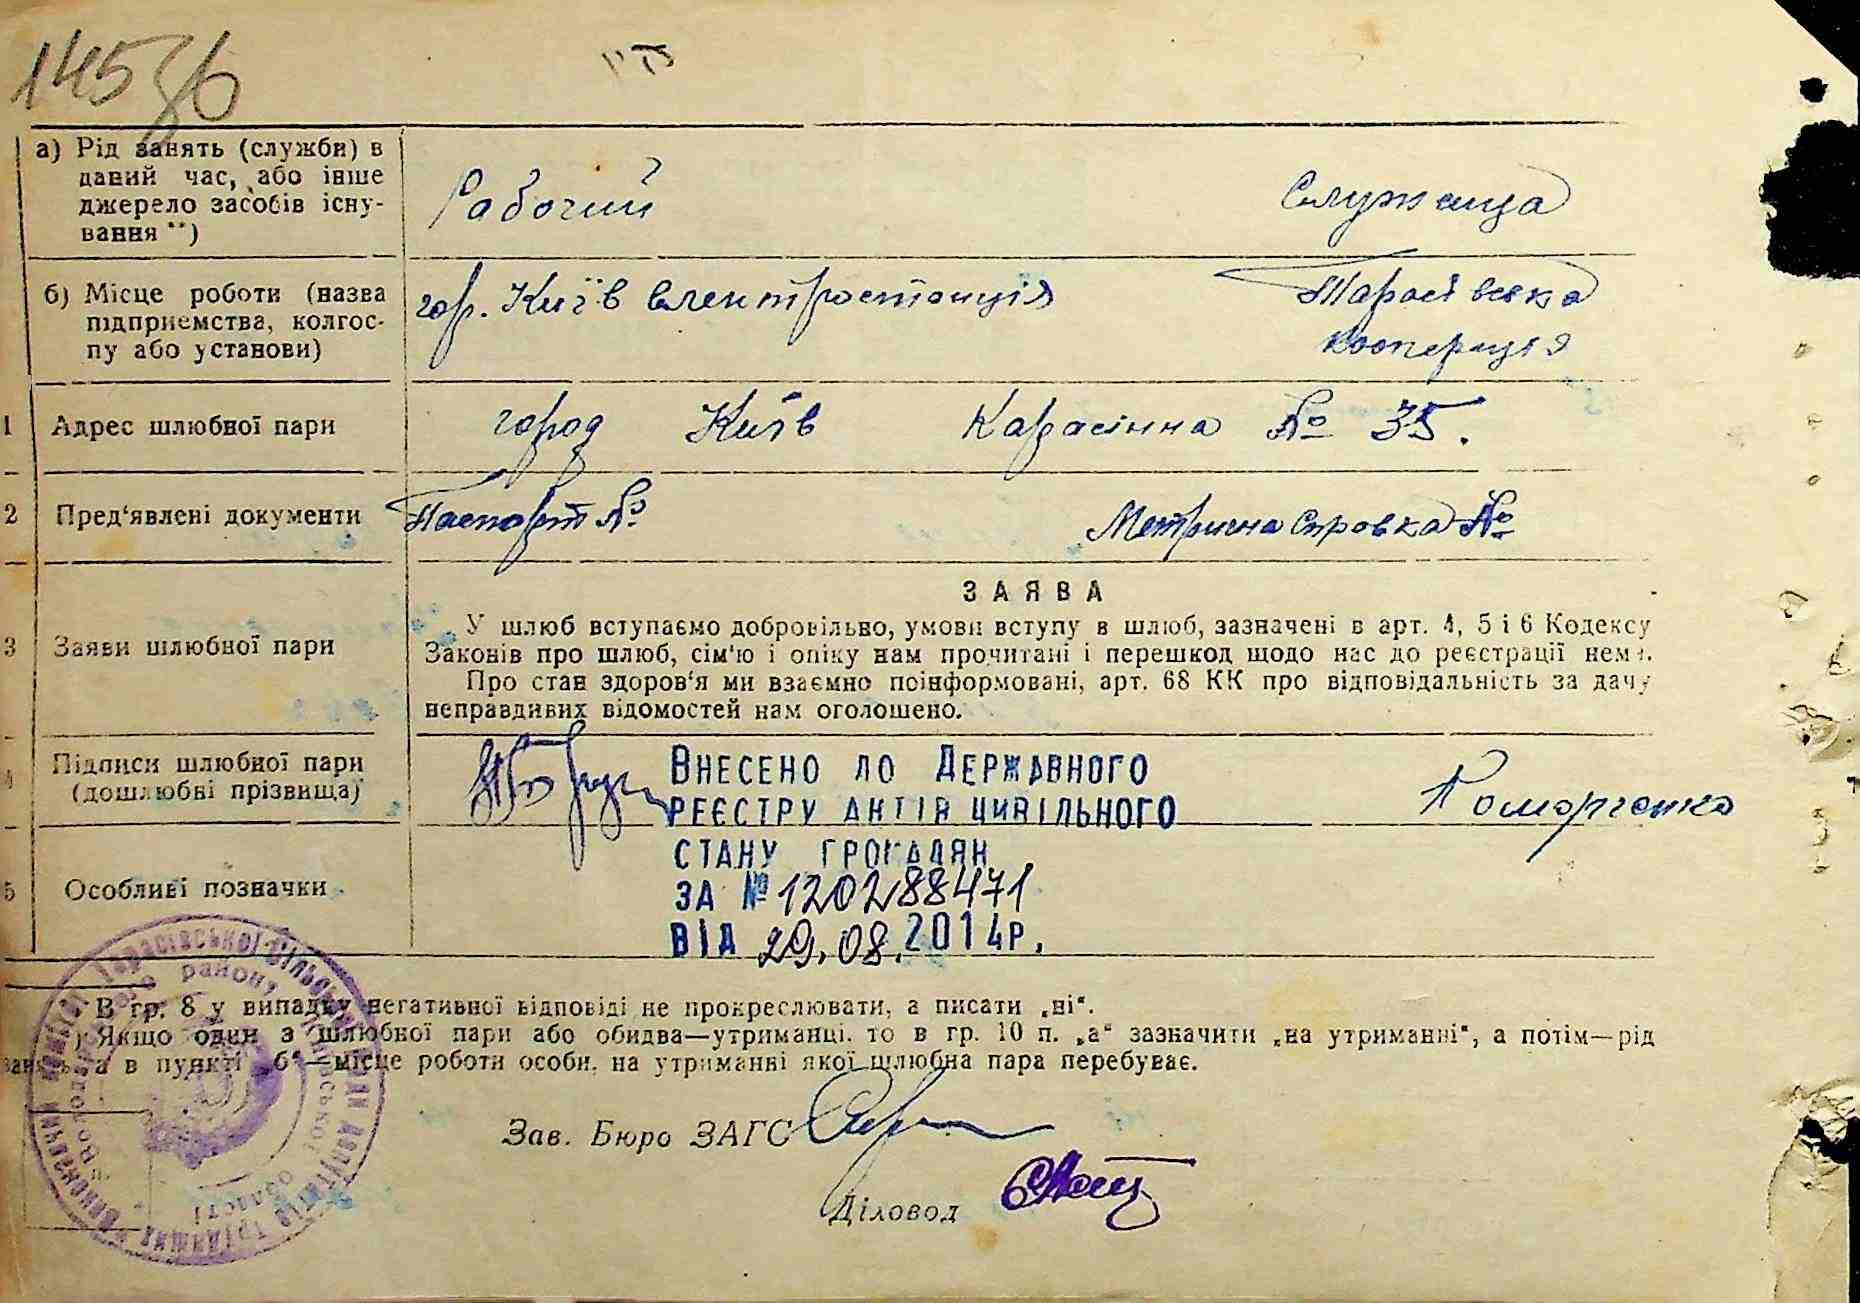 145
а) Рід занять (служби) в
даний час, або інше
джерело засобів існу-
вання **)
Рабочий
Служаща
б) Місце роботи (назва
підприємства, колгос-
пу або установи)
гор. Київ Електростанція
Тарасівська
кооперація
1 Адрес шлюбної пари
город Київ Карасінна № 35.
2 Пред'явлені документи
Паспорт №
Метрична справка №
3 Заяви шлюбної пари
ЗАЯВА
У шлюб вступаємо добровільно, умови вступу в шлюб, зазначені в арт. 4, 5 і 6 Кодексу
Законів про шлюб, сім'ю і опіку нам прочитані і перешкод щодо нас до реєстрації нема.
Про стан здоров'я ми взаємно поінформовані, арт. 68 КК про відповідальність за дачу
неправдивих відомостей нам оголошено.
4 Підписи шлюбної пари
(дошлюбні прізвища)
5 Особливі позначки
Внесено до Державного
реєстру актів цивільного
стану громадян
за № 120288471
від 29.08.2014р.
В гр. 8 у випадку негативної відповіді не прокреслювати, а писати „ні“.
) Якщо один з шлюбної пари або обидва—утриманці, то в гр. 10 п. „а“ зазначити „на утриманні“, а потім—рід
занять, а в пункті „б“—місце роботи особи, на утриманні якої шлюбна пара перебуває.
Зав. Бюро ЗАГС
Діловод